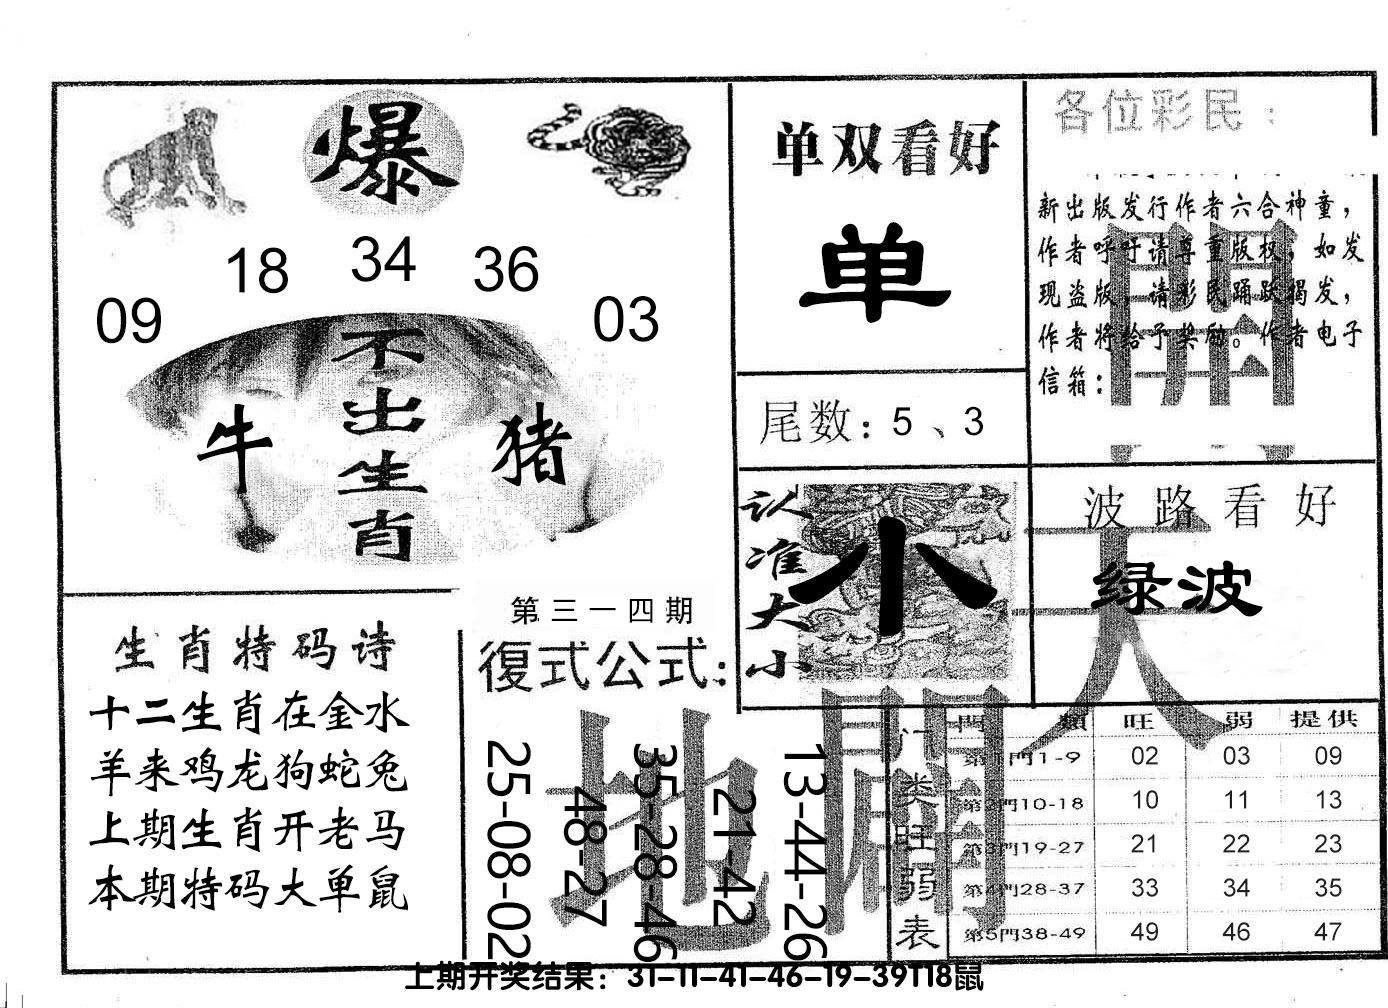 爆
18 34 36
09 03
不出生肖
牛 猪
单双看好
单
尾数：5、3
各位彩民：
新出版发行作者六合神童，
作者呼吁请尊重版权，如发
现盗版，请彩民踊跃揭发，
作者将给予奖励。作者电子
信箱：
開
认准大小
小
波路看好
绿波
天
生肖特码诗
十二生肖在金水
羊来鸡龙狗蛇兔
上期生肖开老马
本期特码大单鼠
第三一四期
復式公式：
25-08-02
48-27
35-28-46
21-42
13-44-26
地
闢
门类旺弱表
門類 旺 弱 提供
第1門1-9 02 03 09
第2門10-18 10 11 13
第3門19-27 21 22 23
第4門28-37 33 34 35
第5門38-49 49 46 47
上期开奖结果：31-11-41-46-19-39T18鼠